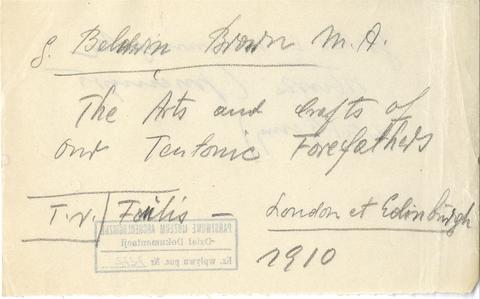 G. Baldwin Brown M.A.
The Arts and Crafts of
our Teutonic Forefathers
T.N. Foulis — London et Edinburgh
1910
PAŃSTWOWE MUZEUM ARCHEOLOGICZNE
-Dział Dokumentacji
Ks. wpływu poz. Nr